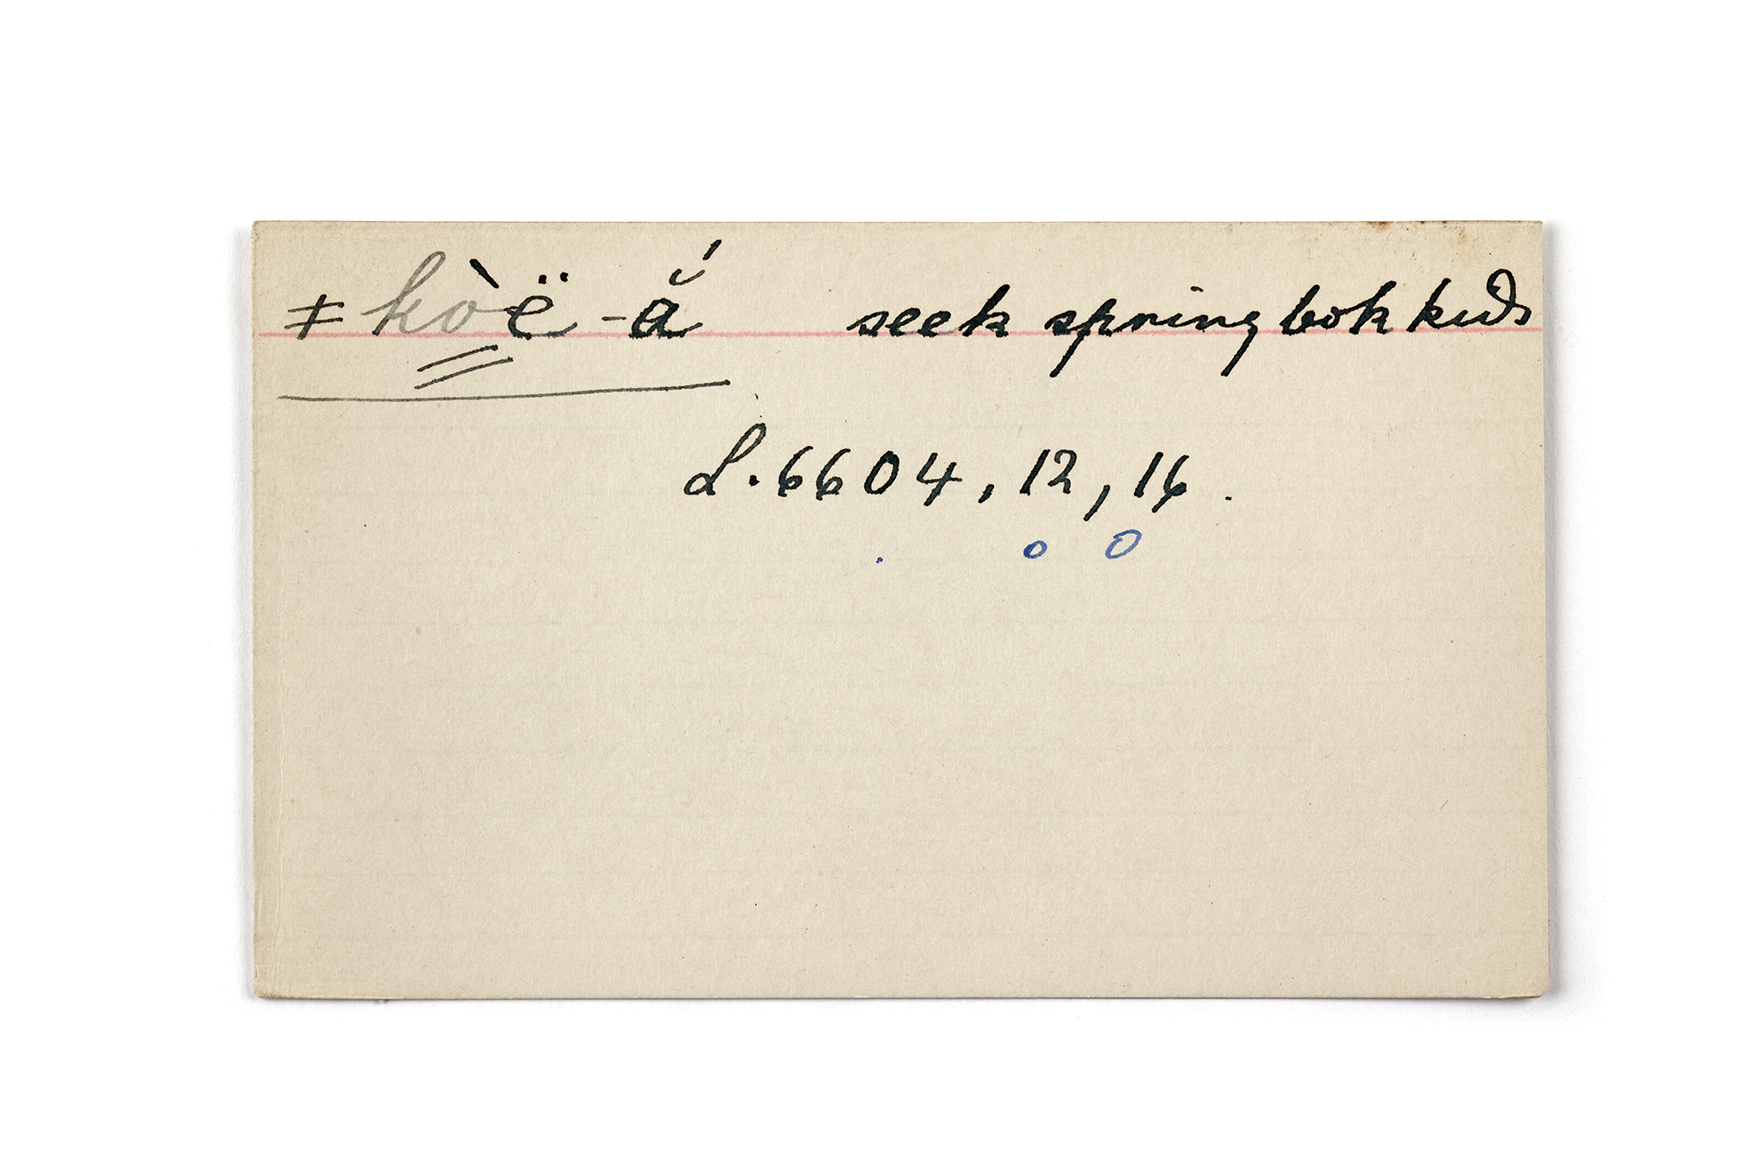 ǂkòë-ắ seek springbok kids
L. 6604, 12, 16.